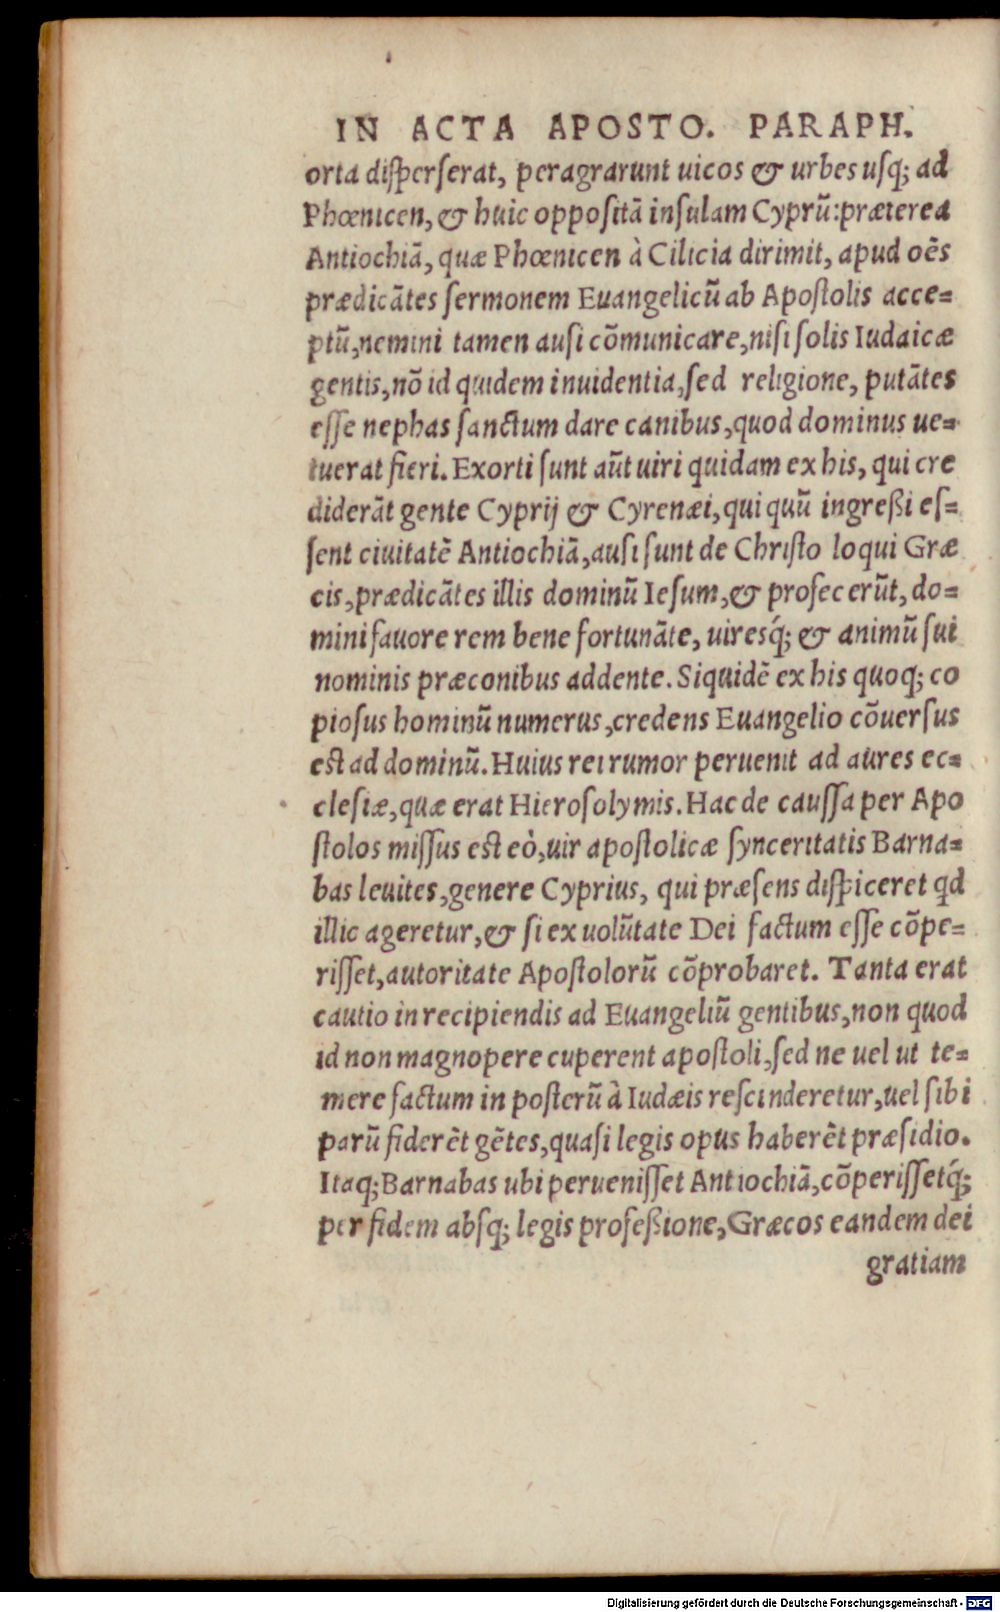 IN ACTA APOSTO. PARAPH.
orta disperserat, peragrarunt uicos & urbes usq; ad
Phœnicen, & huic oppositā insulam Cyprū: præterea
Antiochiā, quæ Phœnicen à Cilicia dirimit, apud oēs
prædicātes sermonem Euangelicū ab Apostolis acce=
ptū, nemini tamen ausi cōmunicare, nisi solis Iudaicæ
gentis, nō id quidem inuidentia, sed religione, putātes
esse nephas sanctum dare canibus, quod dominus ue=
tuerat fieri. Exorti sunt aūt uiri quidam ex his, qui cre
diderāt gente Cyprij & Cyrenæi, qui quū ingreßi es=
sent ciuitatē Antiochiā, ausi sunt de Christo loqui Græ
cis, prædicātes illis dominū Iesum, & profecerūt, do=
mini fauore rem bene fortunāte, uiresq́; & animū sui
nominis præconibus addente. Siquidē ex his quoq; co
piosus hominū numerus, credens Euangelio cōuersus
est ad dominū. Huius rei rumor peruenit ad aures ec=
clesiæ, quæ erat Hierosolymis. Hac de caussa per Apo
stolos missus est eò, uir apostolicæ synceritatis Barna=
bas leuites, genere Cyprius, qui præsens dispiceret qd
illic ageretur, & si ex uolūtate Dei factum esse cōpe=
risset, autoritate Apostolorū cōprobaret. Tanta erat
cautio in recipiendis ad Euangeliū gentibus, non quod
id non magnopere cuperent apostoli, sed ne uel ut te=
mere factum in posterū à Iudæis rescinderetur, uel sibi
parū fiderēt gētes, quasi legis opus haberēt præsidio.
Itaq; Barnabas ubi peruenisset Antiochiā, cōperissetq́;
per fidem absq; legis profeßione, Græcos eandem dei
gratiam
Digitalisierung gefördert durch die Deutsche Forschungsgemeinschaft - DFG